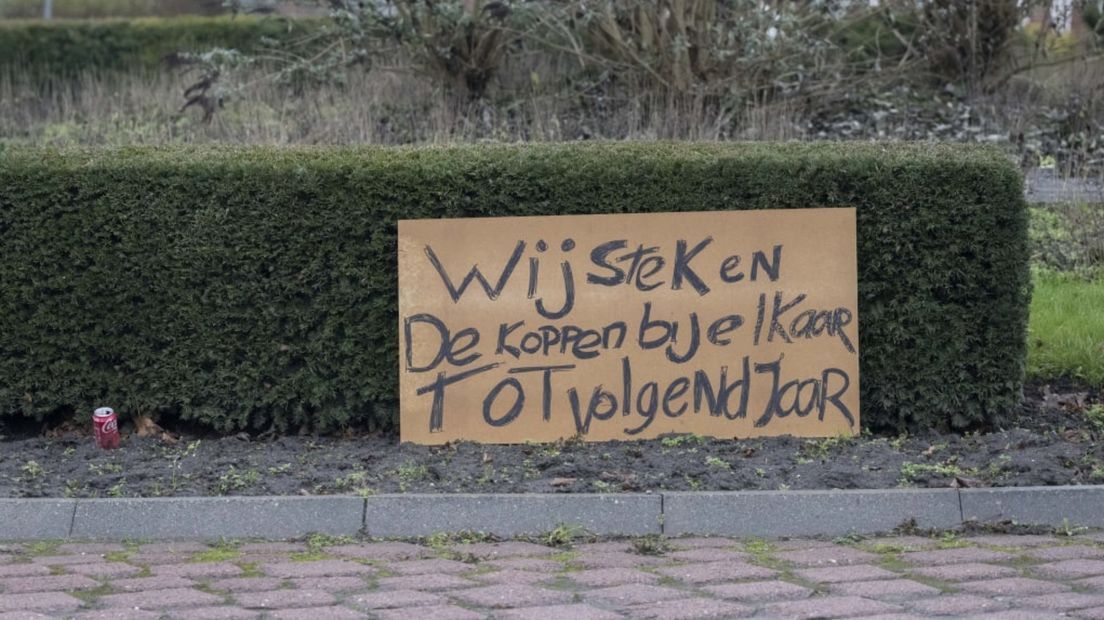 WIJ SteKeN
De KOPPen bij elKaar
TOT volgend Jaar
Coca